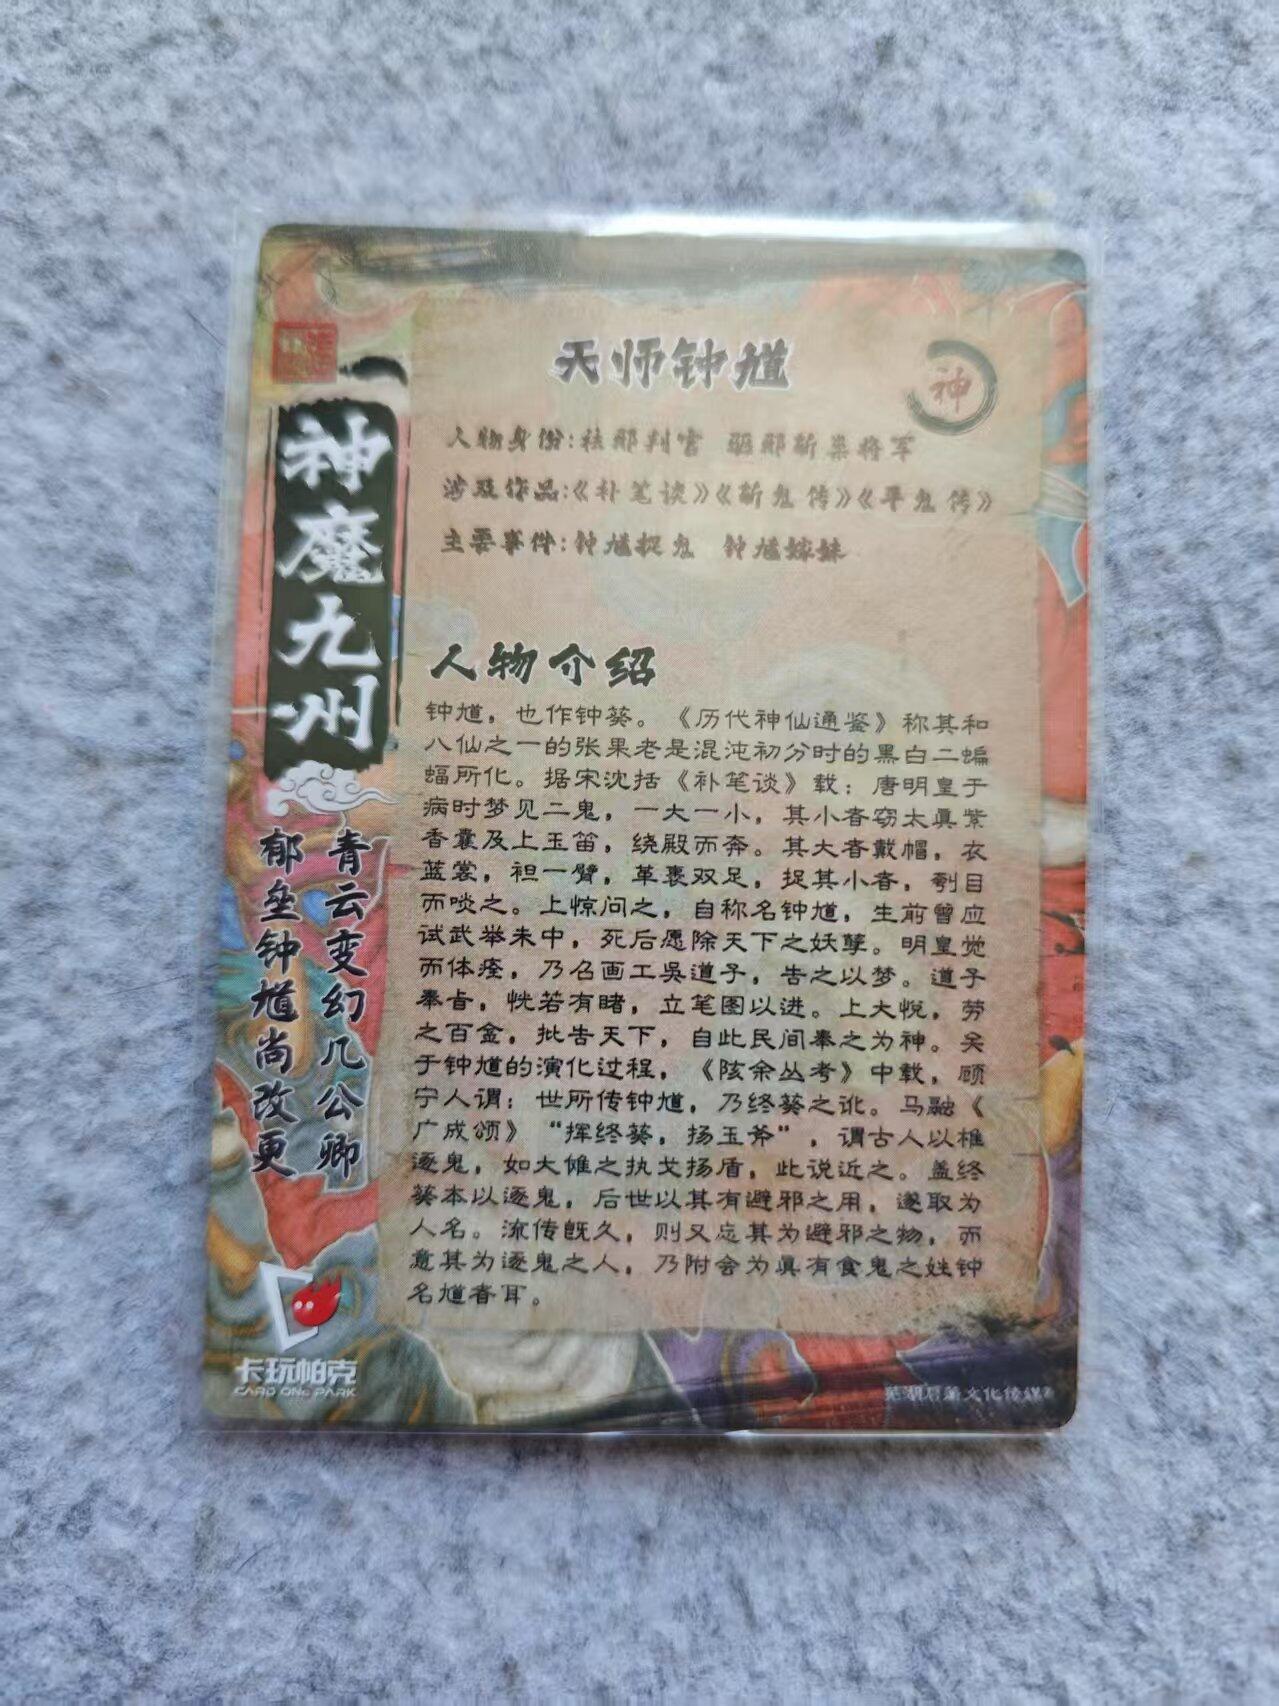 天师钟馗
神
人物身份:祛邪判官 驱邪斩祟将军
涉及作品:《补笔谈》《斩鬼传》《平鬼传》
主要事件:钟馗捉鬼 钟馗嫁妹
神魔九州
青云变幻几公卿
郁垒钟馗尚改更
人物介绍
钟馗，也作钟葵。《历代神仙通鉴》称其和
八仙之一的张果老是混沌初分时的黑白二蝙
蝠所化。据宋沈括《补笔谈》载：唐明皇于
病时梦见二鬼，一大一小，其小者窃太真紫
香囊及上玉笛，绕殿而奔。其大者戴帽，衣
蓝裳，袒一臂，革裹双足，捉其小者，刳目
而啖之。上惊问之，自称名钟馗，生前曾应
试武举未中，死后愿除天下之妖孽。明皇觉
而体痊，乃召画工吴道子，告之以梦。道子
奉旨，恍若有睹，立笔图以进。上大悦，劳
之百金，批告天下，自此民间奉之为神。关
于钟馗的演化过程，《陔余丛考》中载，顾
宁人谓：世所传钟馗，乃终葵之讹。马融《
广成颂》“挥终葵，扬玉斧”，谓古人以椎
逐鬼，如大傩之执戈扬盾，此说近之。盖终
葵本以逐鬼，后世以其有避邪之用，遂取为
人名。流传既久，则又忘其为避邪之物，而
意其为逐鬼之人，乃附会为真有食鬼之姓钟
名馗者耳。
卡玩帕克
CARD ONE PARK